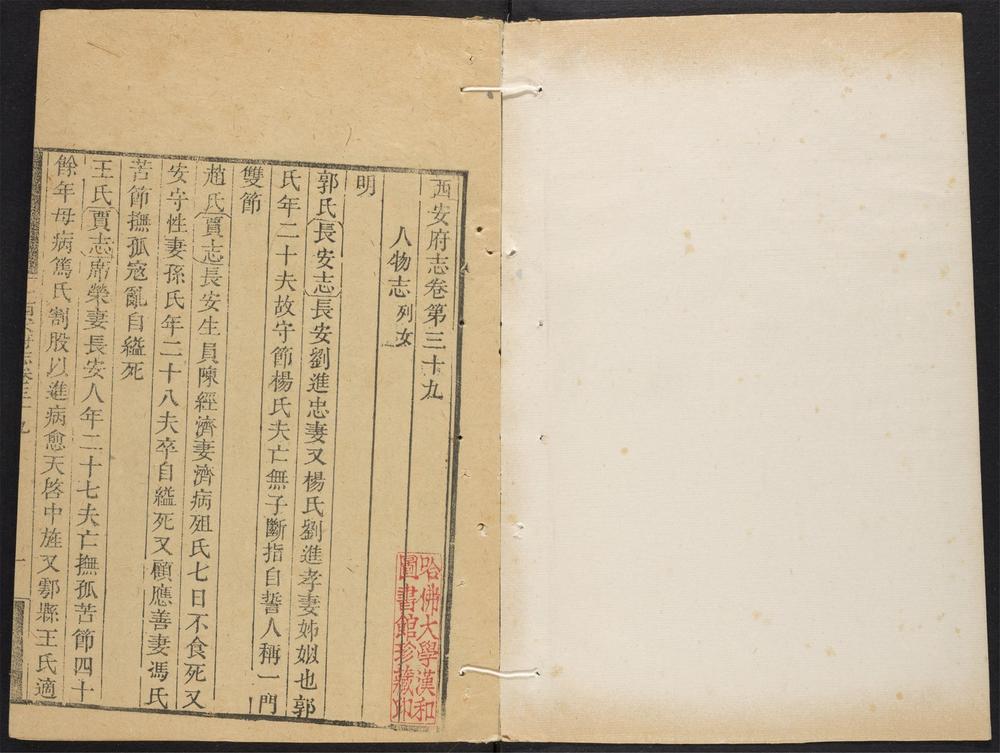 西安府志卷第三十九
人物志列女
明
郭氏長安志長安劉進忠妻又楊氏劉進孝妻姊娰也郭
氏年二十夫故守節楊氏夫亡無子斷指自誓人稱一門
雙節
趙氏賈志長安生員陳經濟妻濟病殂氏七日不食死又
安守性妻孫氏年二十八夫卒自縊死又顧應善妻馮氏
苦節撫孤寇亂自縊死
王氏賈志席榮妻長安人年二十七夫亡撫孤苦節四十
餘年母病篤氏割股以進病愈天啓中旌又鄠縣王氏適
哈佛大學漢和
圖書館珍藏印